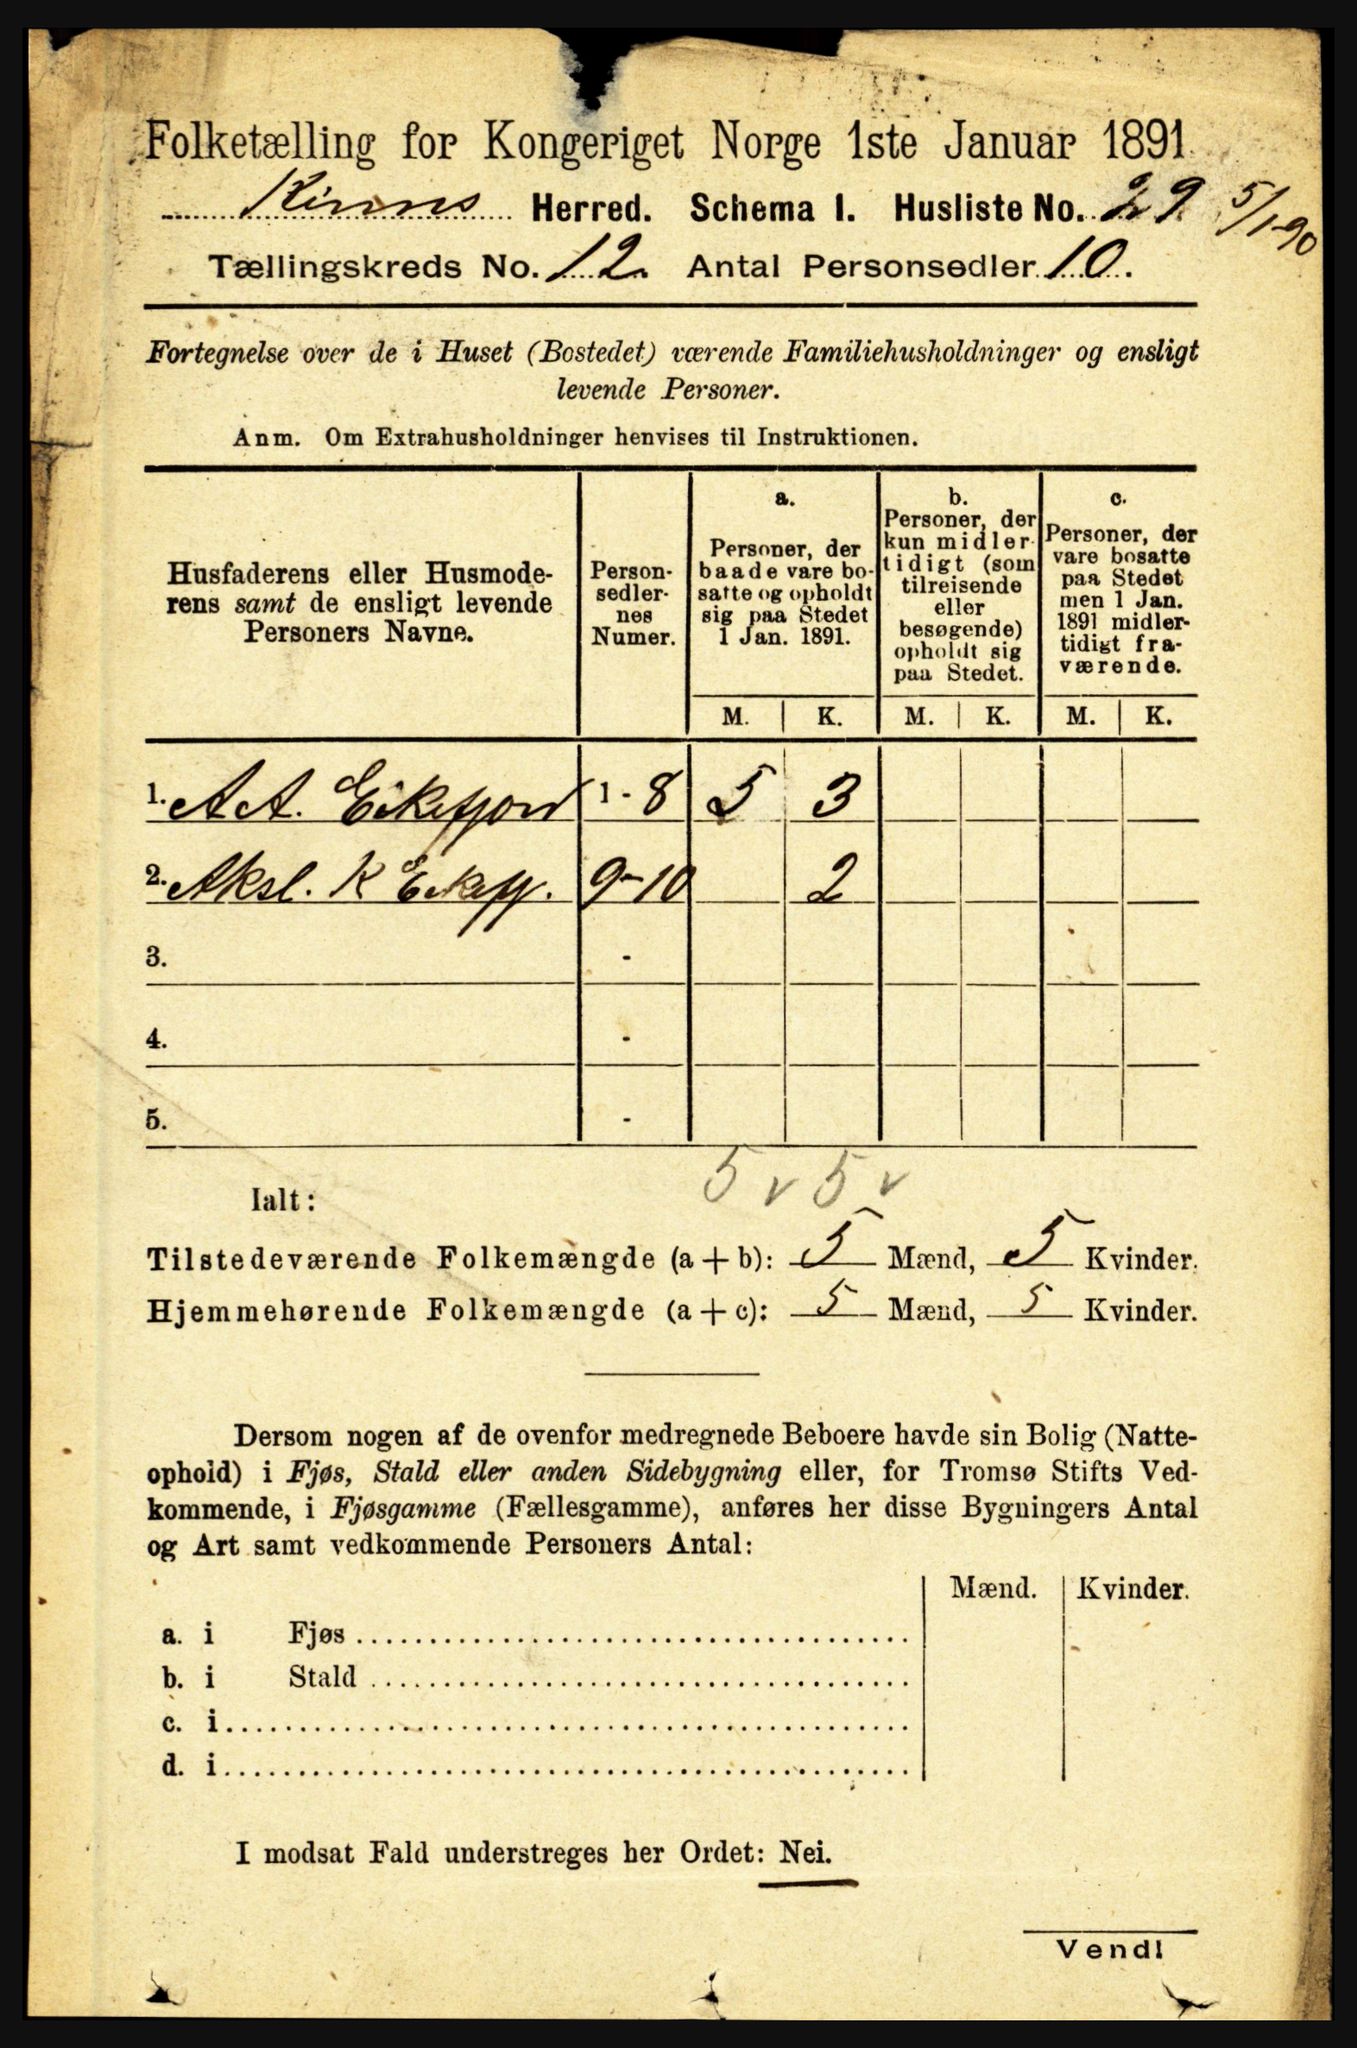 Folketælling for Kongeriget Norge 1ste Januar 1891.
Kinns Herred. Schema I. Husliste No. 29 5/1-90
Tællingskreds No. 12. Antal Personsedler 10.
Fortegnelse over de i Huset (Bostedet) værende Familiehusholdninger og ensligt
levende Personer.
Anm. Om Extrahusholdninger henvises til Instruktionen.
Husfaderens eller Husmode-
rens samt de ensligt levende
Personers Navne.
Person-
sedler-
nes
Numer.
a.
Personer, der
baade vare bo-
satte og opholdt
sig paa Stedet
1 Jan. 1891.
b.
Personer, der
kun midler-
tidigt (som
tilreisende
eller
besøgende)
opholdt sig
paa Stedet.
c.
Personer, der
vare bosatte
paa Stedet
men 1 Jan.
1891 midler-
tidigt fra-
værende.
M. K. M. K. M. K.
1. A A. Eikefjord 1 - 8 5 3
2. Aksl. K Eikefj. 9-10 2
3. -
4. -
5. -
5 v 5 v
Ialt:
Tilstedeværende Folkemængde (a + b): 5 Mænd, 5 Kvinder.
Hjemmehørende Folkemængde (a + c): 5 Mænd, 5 Kvinder.
Dersom nogen af de ovenfor medregnede Beboere havde sin Bolig (Natte-
ophold) i Fjøs, Stald eller anden Sidebygning eller, for Tromsø Stifts Ved-
kommende, i Fjøsgamme (Fællesgamme), anføres her disse Bygningers Antal
og Art samt vedkommende Personers Antal:
Mænd. Kvinder.
a. i Fjøs
b. i Stald
c. i
d. i
I modsat Fald understreges her Ordet: Nei.
Vend!